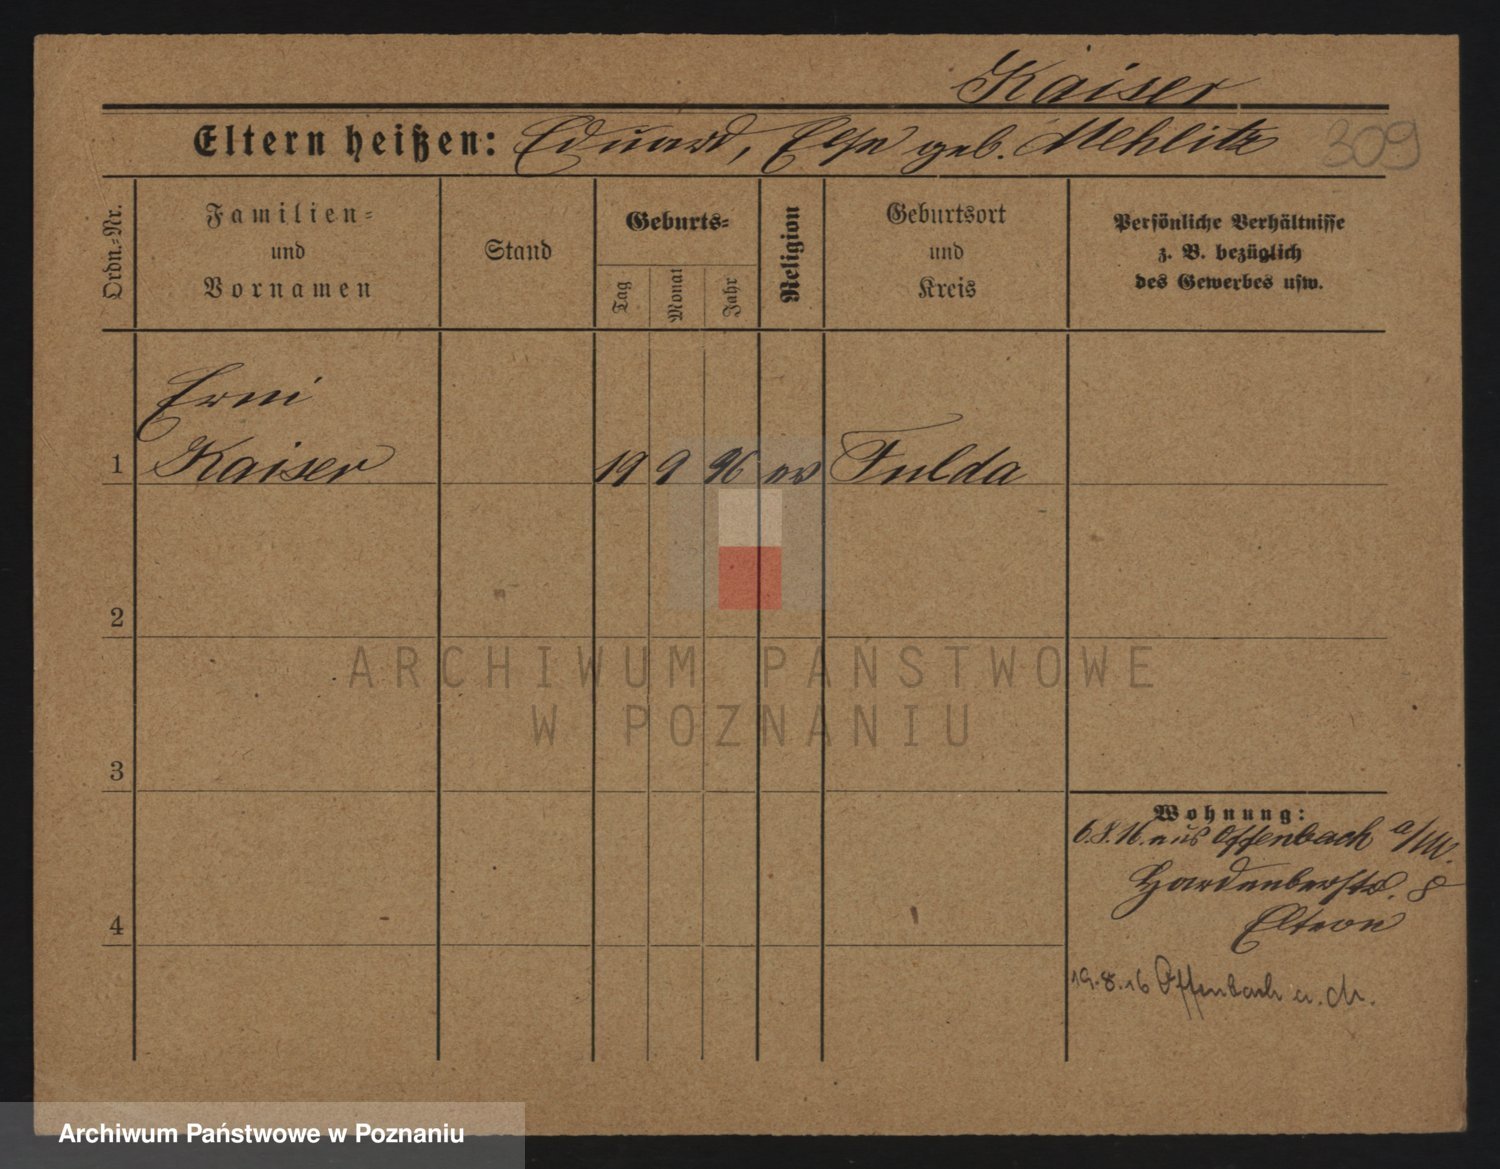 Kaiser
Eltern heißen: Eduard, Else geb. Mehlitz 309
Ordn.-Nr.
Familien-
und
Vornamen
Stand
Geburts-
Tag
Monat
Jahr
Religion
Geburtsort
und
Kreis
Persönliche Verhältnisse
z. B. bezüglich
des Gewerbes usw.
Erni
1 Kaiser 19 9 96 ev Fulda
2
ARCHIWUM PAŃSTWOWE
W POZNANIU
3
Wohnung:
6.8.16. aus Offenbach a/M.
Hardenbergstr. 8
Eltern
4
19.8.16 Offenbach a. M.
Archiwum Państwowe w Poznaniu